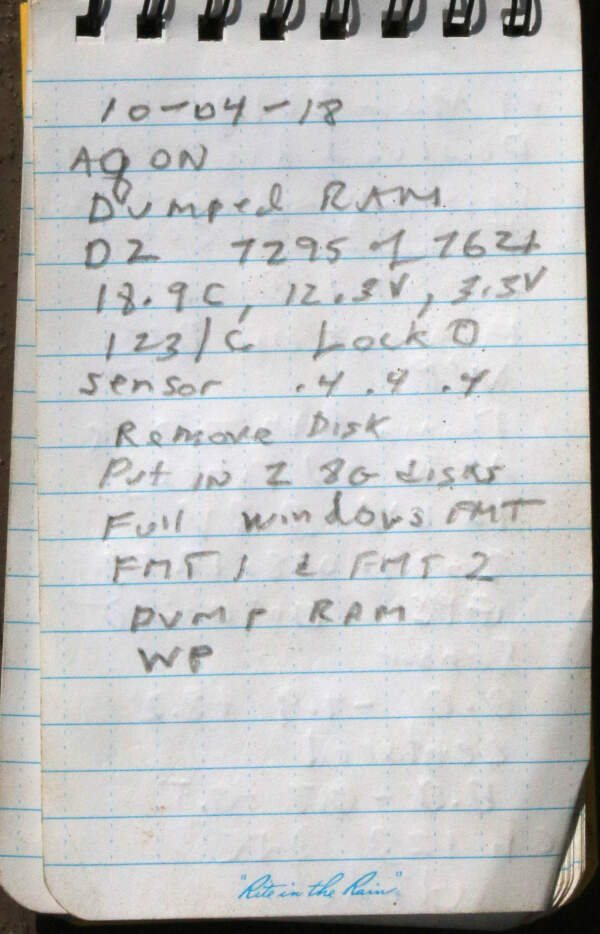 10-04-18
AQ ON
Dumped RAM
D2 7295 of 7621
18.9C, 12.3V, 3.3V
123/C Lock O
sensor .4 .4 .4
Remove Disk
Put in 2 8G disks
Full Windows FMT
FMT 1 & FMT 2
DUMP RAM
WP
"Rite in the Rain"